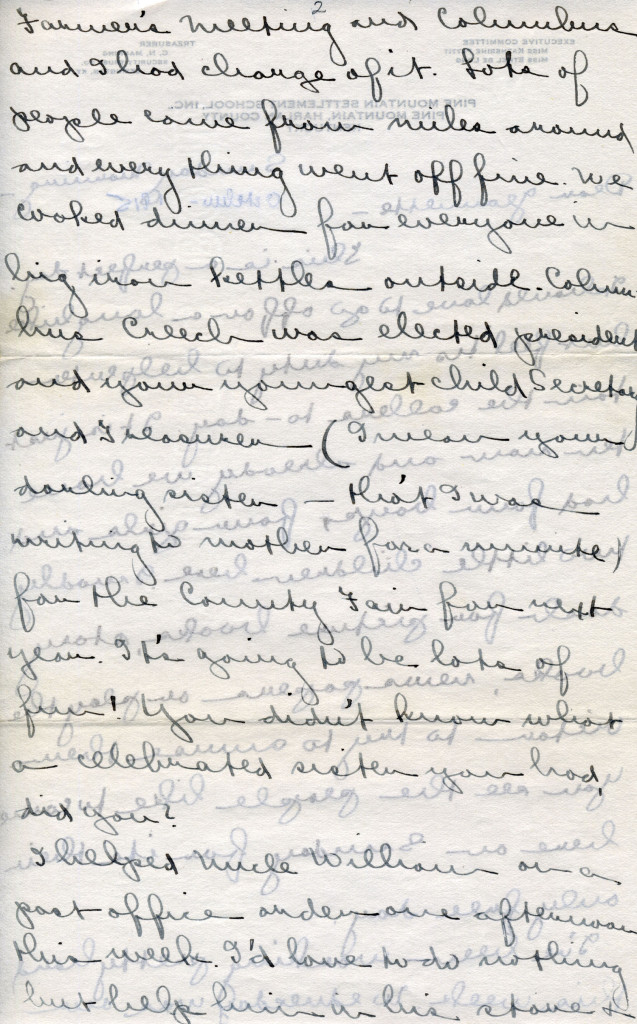 2
Farmer's meeting and Columbus
and I had charge of it. Lots of
people came from miles around
and everything went off fine. We
cooked dinner for everyone in
big iron kettles outside. Colum-
bus Creech was elected president
and your youngest child Secretary
and Treasurer (I mean your
darling sister — that I was
writing to mother for a minute)
for the County Fair for next
year. It's going to be lots of
fun! You didn't know what
a celebrated sister you had,
did you?
I helped Uncle William on a
post office order one afternoon
this week. I'd love to do nothing
but help him in his store &